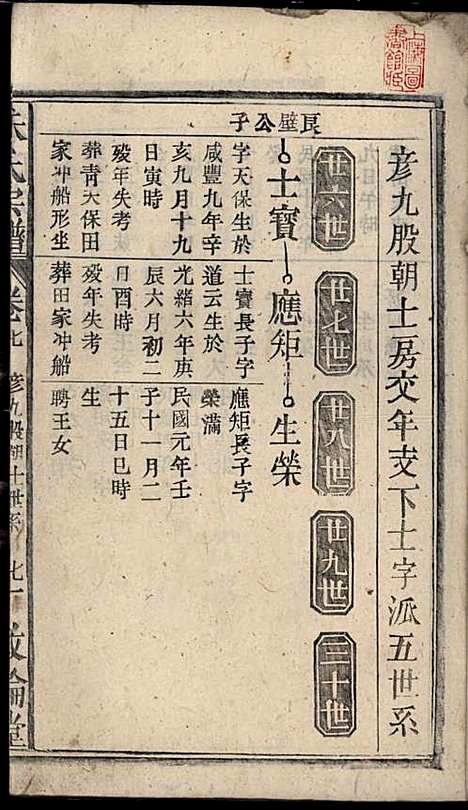 彦九股朝士房交年支下士字派五世系
廿六世
廿七世
廿八世
廿九世
三十世
良璧公子
士寶
應矩
生榮
字天保生於
咸豐九年辛
亥九月十九
日寅時
歿年失考
葬青大保田
家冲船形坐
士寶長子字
道云生於
光緒六年庚
辰六月初二
日酉時
歿年失考
葬田家冲船
應矩長子字
榮滿
民國元年壬
子十一月二
十五日巳時
生
聘王女
氏宗譜
卷七
彦九股朝士世系
七一
敦倫堂